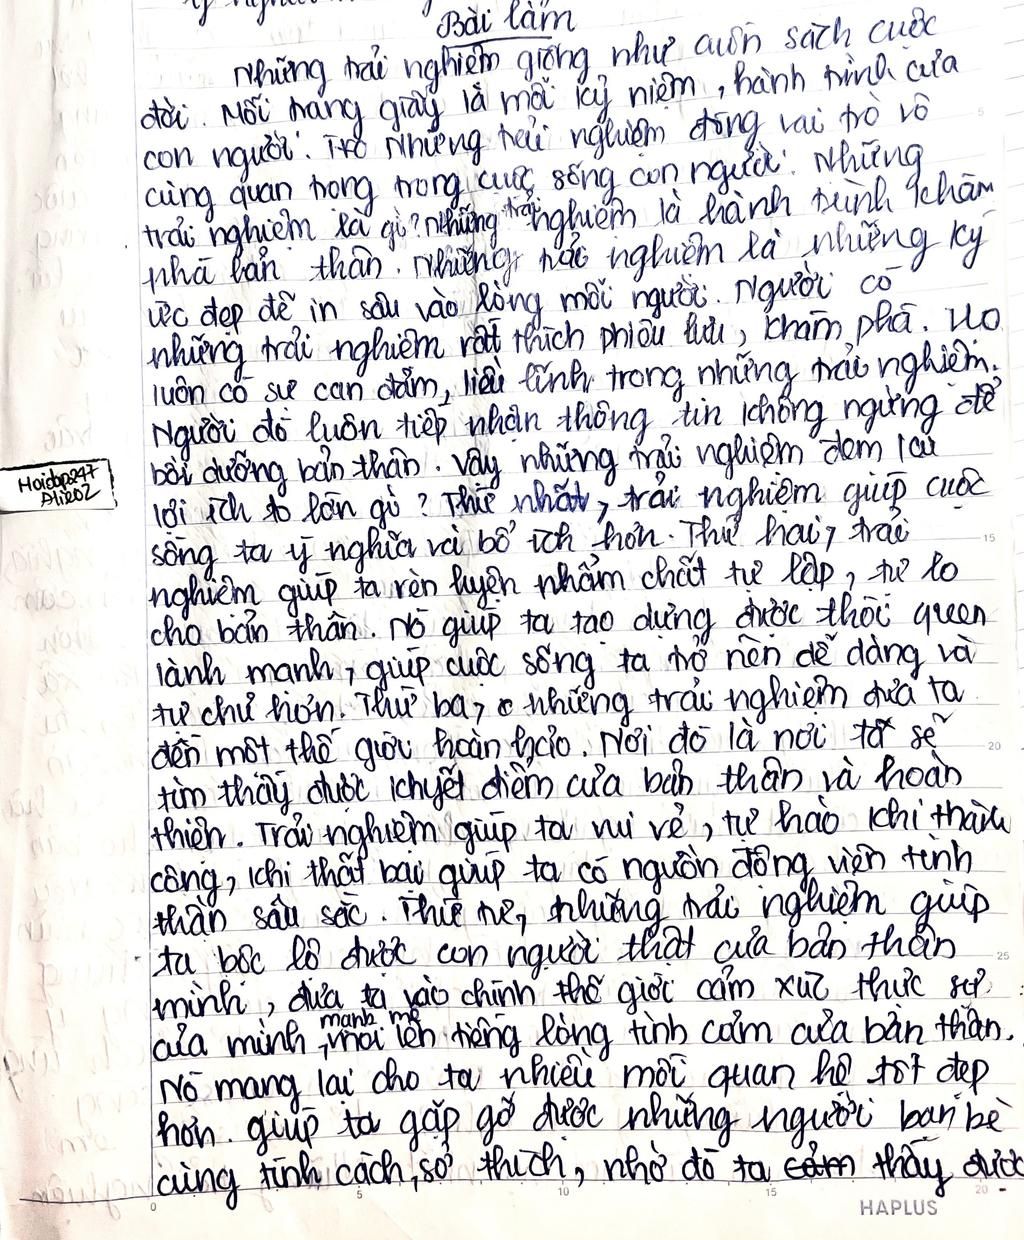 Bài làm
Những trải nghiệm giống như cuốn sách cuộc
đời. Mỗi trang giấy là mỗi kỷ niệm, hành trình của
con người. Những trải nghiệm đóng vai trò vô
cùng quan trọng trong cuộc sống con người. Những
trải nghiệm là gì? Những trải nghiệm là hành trình khám
phá bản thân. Những trải nghiệm là những ký
ức đẹp để in sâu vào lòng mỗi người. Người có
những trải nghiệm rất thích phiêu lưu, khám phá. Họ
luôn có sự can đảm, liều lĩnh trong những trải nghiệm.
Người đó luôn tiếp nhận thông tin không ngừng để
bồi dưỡng bản thân. Vậy những trải nghiệm đem lại
lợi ích to lớn gì? Thứ nhất, trải nghiệm giúp cuộc
sống ta ý nghĩa và bổ ích hơn. Thứ hai, trải
nghiệm giúp ta rèn luyện phẩm chất tự lập, tự lo
cho bản thân. Nó giúp ta tạo dựng được thói quen
lành mạnh, giúp cuộc sống ta trở nên dễ dàng và
tự chủ hơn. Thứ ba, những trải nghiệm đưa ta
đến một thế giới hoàn hảo. Nơi đó là nơi ta sẽ
tìm thấy được khuyết điểm của bản thân và hoàn
thiện. Trải nghiệm giúp ta vui vẻ, tự hào khi thành
công, khi thất bại giúp ta có nguồn động viên tinh
thần sâu sắc. Thứ tư, những trải nghiệm giúp
ta bộc lộ được con người thật của bản thân
mình, đưa ta vào chính thế giới cảm xúc thực sự
của mình, mạnh mẽ nói lên tiếng lòng tình cảm của bản thân.
Nó mang lại cho ta nhiều mối quan hệ tốt đẹp
hơn. giúp ta gặp gỡ được những người bạn bè
cùng tính cách, sở thích, nhờ đó ta thấy được
Hoidap247
HAPLUS
0 5 10 15 20
5
15
20
25